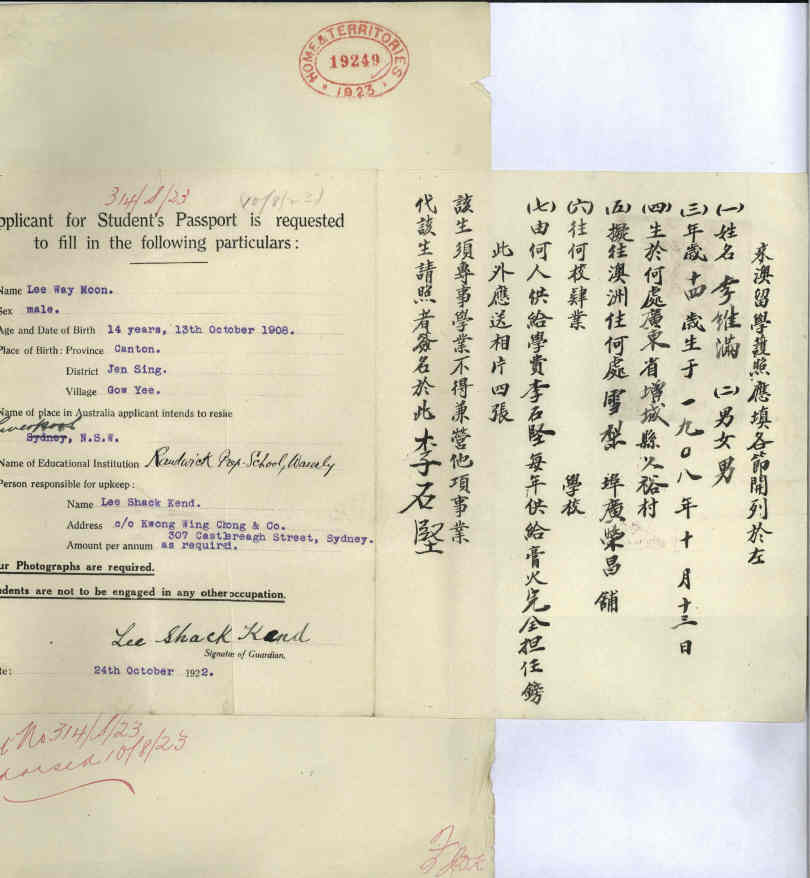 HOME & TERRITORIES
19249
* 1923 *
314/S/23
10/8/23
pplicant for Student's Passport is requested
to fill in the following particulars:
Name Lee Way Moon.
Sex male.
Age and Date of Birth 14 years, 13th October 1908.
Place of Birth: Province Canton.
District Jen Sing.
Village Gow Yee.
Name of place in Australia applicant intends to reside
Liverpool
Sydney, N.S.W.
Name of Educational Institution Randwick Prep-School, Waverly
Person responsible for upkeep:
Name Lee Shack Kend.
Address c/o Kwong Wing Chong & Co.
307 Castlereagh Street, Sydney.
Amount per annum as required.
ur Photographs are required.
udents are not to be engaged in any other occupation.
Lee Shack Kend
Signature of Guardian.
te: 24th October 1922.
t No 314/S/23
dorsed 10/8/23
來澳留學護照應填各節開列於左
(一)姓名 李維滿 (二)男女 男
(三)年歲 十四歲生于一九〇八年十月十三日
(四)生於何處 廣東省增城縣 裕村
(五)擬往澳洲住何處 雪梨 埠廣榮昌舖
(六)往何校肄業 學校
(七)由何人供給學費 李石堅每年供給膏火完全担任鎊
此外應送相片四張
該生須專事學業不得兼營他項事業
代該生請照者簽名於此 李石堅